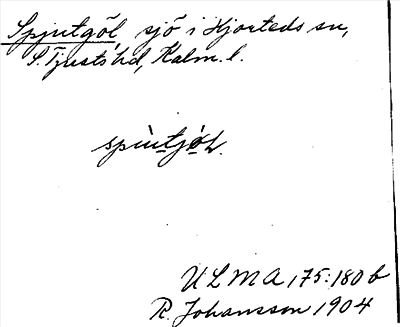 Spjutgöl sjö i Hjorteds sn,
S. Tjusts hd, Kalm. l.
spùtjö̀l.
ULMA 175:180 b
R. Johansson 1904